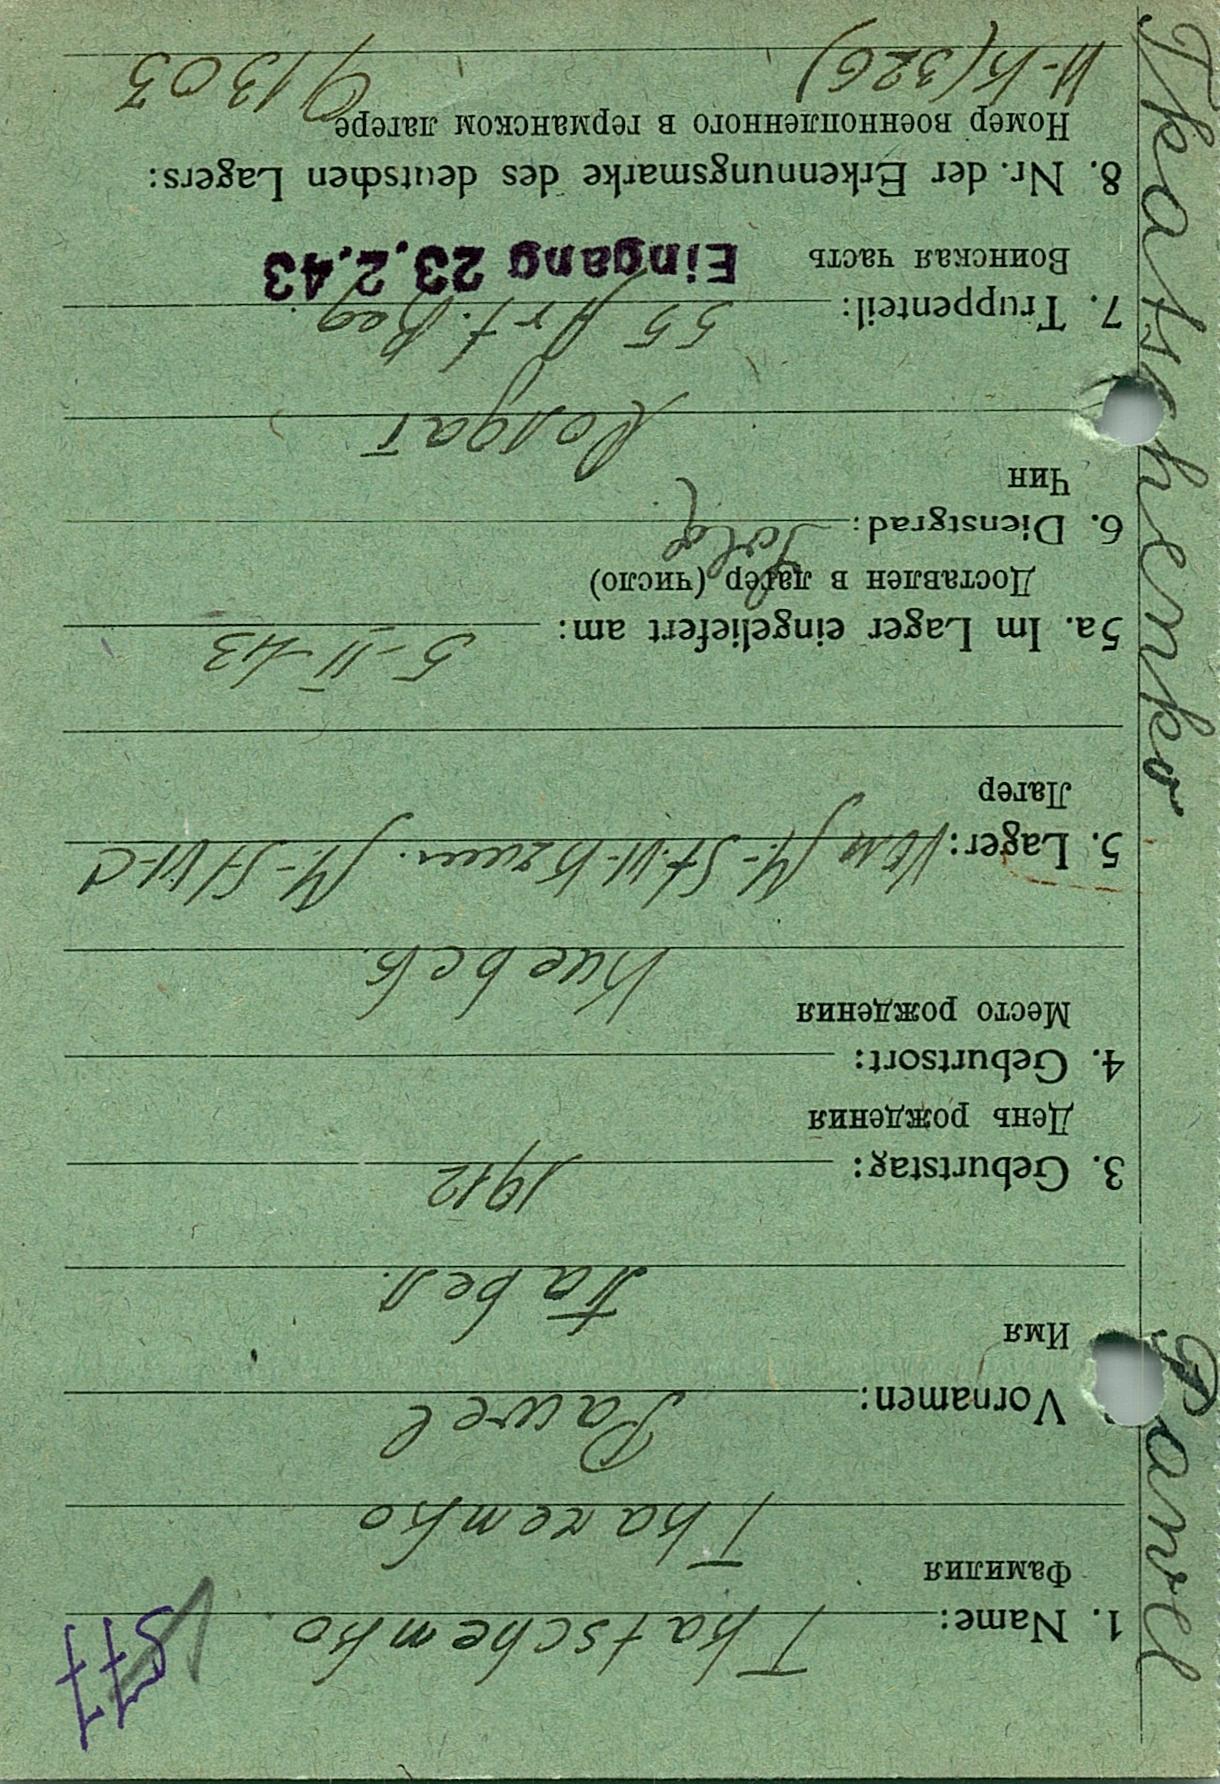 Tkatschenko Pawel
577
1. Name: Tkatschenko
Фамилия
Ткаченко
Vornamen: Pawel
Имя
Павел.
3. Geburtstag: 1912
День рождения
4. Geburtsort:
Место рождения
Киевск.
5. Lager: Vom M.-St. VI-K zum. M.-St VI-C
Лагер
5a. Im Lager eingeliefert am: 5-II-43
Доставлен в лагер (число)
6. Dienstgrad: Sold.
Чин
Солдат
7. Truppenteil: 55 Art. Reg
Воинская часть
Eingang 23.2.43
8. Nr. der Erkennungsmarke des deutschen Lagers:
Номер военнопленного в германском лагере
VI-K (326) 91303